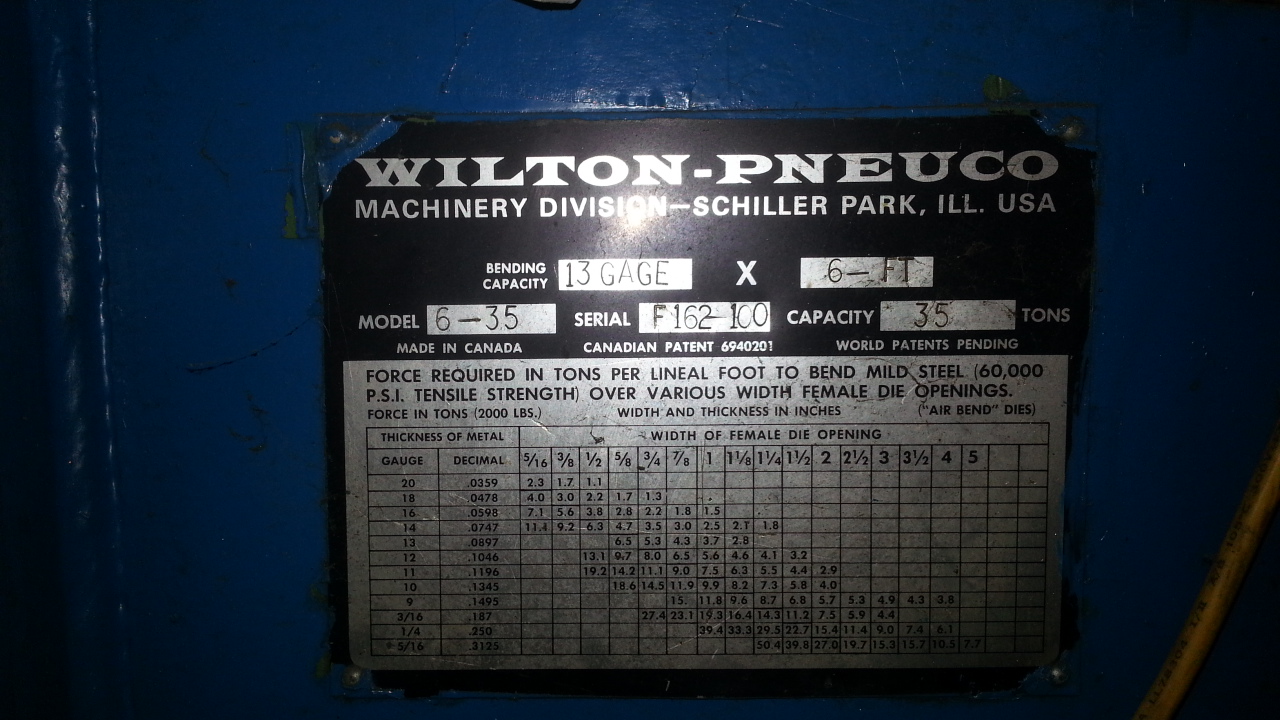 WILTON-PNEUCO
MACHINERY DIVISION—SCHILLER PARK, ILL. USA
BENDING CAPACITY 13 GAGE X 6-FT
MODEL 6-35 SERIAL F162-100 CAPACITY 35 TONS
MADE IN CANADA CANADIAN PATENT 6940201 WORLD PATENTS PENDING
FORCE REQUIRED IN TONS PER LINEAL FOOT TO BEND MILD STEEL (60,000
P.S.I. TENSILE STRENGTH) OVER VARIOUS WIDTH FEMALE DIE OPENINGS.
FORCE IN TONS (2000 LBS.) WIDTH AND THICKNESS IN INCHES ("AIR BEND" DIES)
THICKNESS OF METAL WIDTH OF FEMALE DIE OPENING
GAUGE DECIMAL 5/16 3/8 1/2 5/8 3/4 7/8 1 1 1/8 1 1/4 1 1/2 2 2 1/2 3 3 1/2 4 5
20 .0359 2.3 1.7 1.1
18 .0478 4.0 3.0 2.2 1.7 1.3
16 .0598 7.1 5.6 3.8 2.8 2.2 1.8 1.5
14 .0747 11.4 9.2 6.3 4.7 3.5 3.0 2.5 2.1 1.8
13 .0897 6.5 5.3 4.3 3.7 2.8
12 .1046 13.1 9.7 8.0 6.5 5.6 4.6 4.1 3.2
11 .1196 19.2 14.2 11.1 9.0 7.5 6.3 5.5 4.4 2.9
10 .1345 18.6 14.5 11.9 9.9 8.2 7.3 5.8 4.0
9 .1495 15. 11.8 9.6 8.7 6.8 5.7 5.3 4.9 4.3 3.8
3/16 .187 27.4 23.1 19.3 16.4 14.3 11.2 7.5 5.9 4.4
1/4 .250 39.4 33.3 29.5 22.7 15.4 11.4 9.0 7.4 6.1
5/16 .3125 50.4 39.8 27.0 19.7 15.3 15.7 10.5 7.7